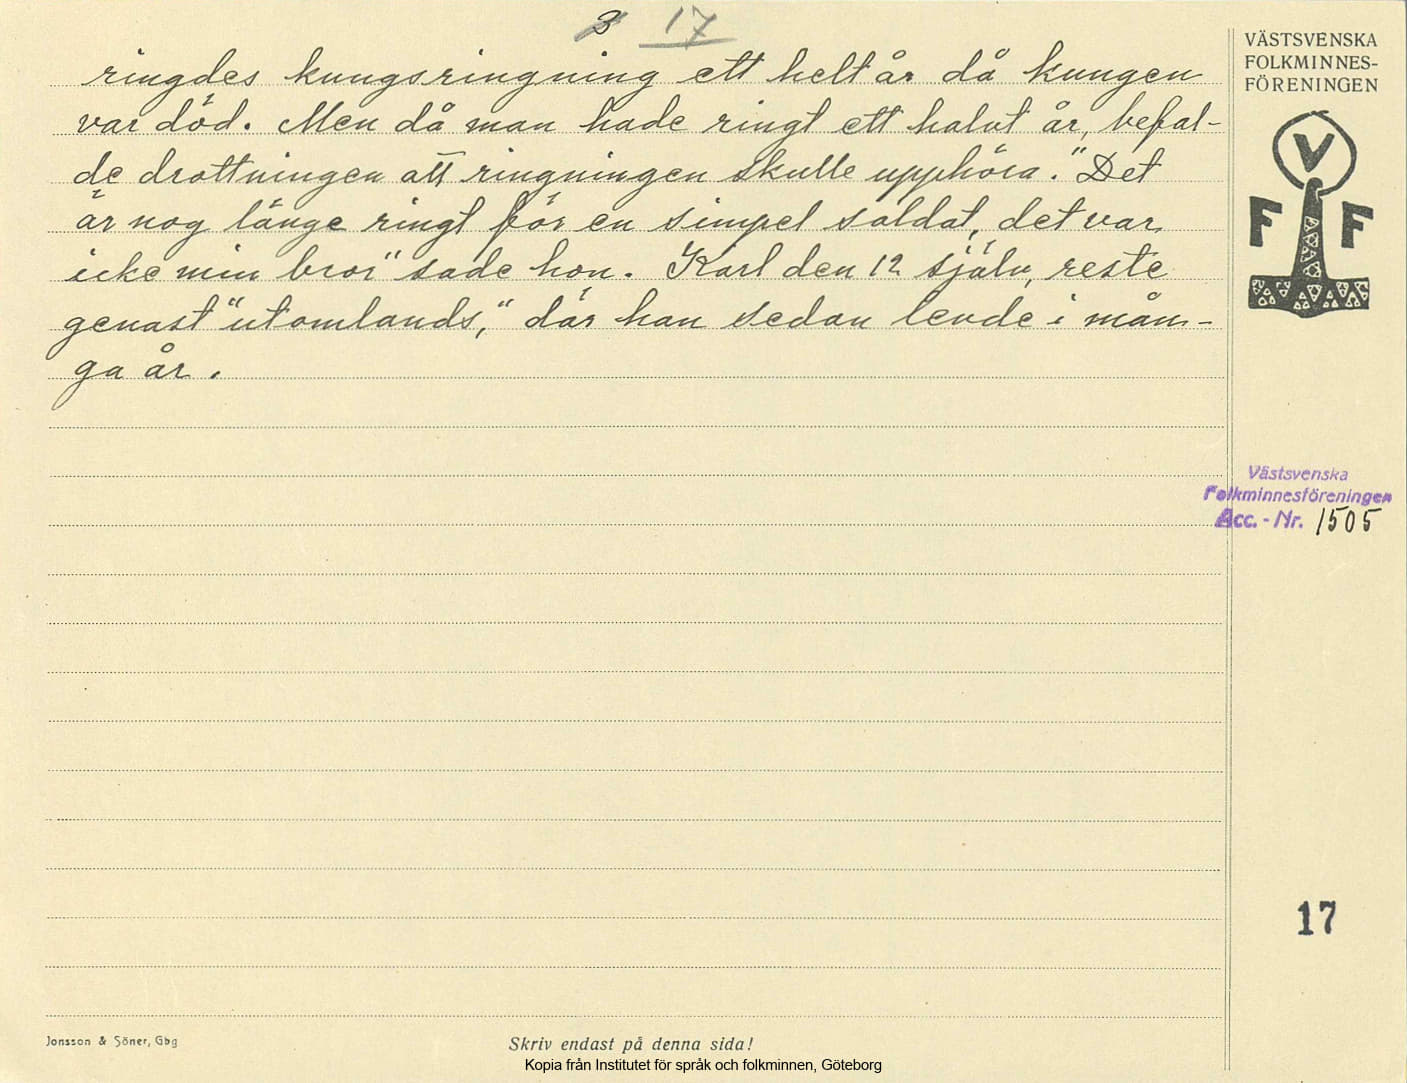 3 17
ringdes kungsringning ett helt år då kungen
var död. Men då man hade ringt ett halvt år, befal-
de drottningen att ringningen skulle upphöra. "Det
är nog länge ringt för en simpel soldat, det var
icke min bror" sade hon. Karl den 12 själv, reste
genast "utomlands," där han sedan levde i mån-
ga år.
VÄSTSVENSKA
FOLKMINNES-
FÖRENINGEN
V
F F
Västsvenska
Folkminnesföreningen
Acc. - Nr. 1505
17
Jonsson & Söner, Gbg
Skriv endast på denna sida!
Kopia från Institutet för språk och folkminnen, Göteborg